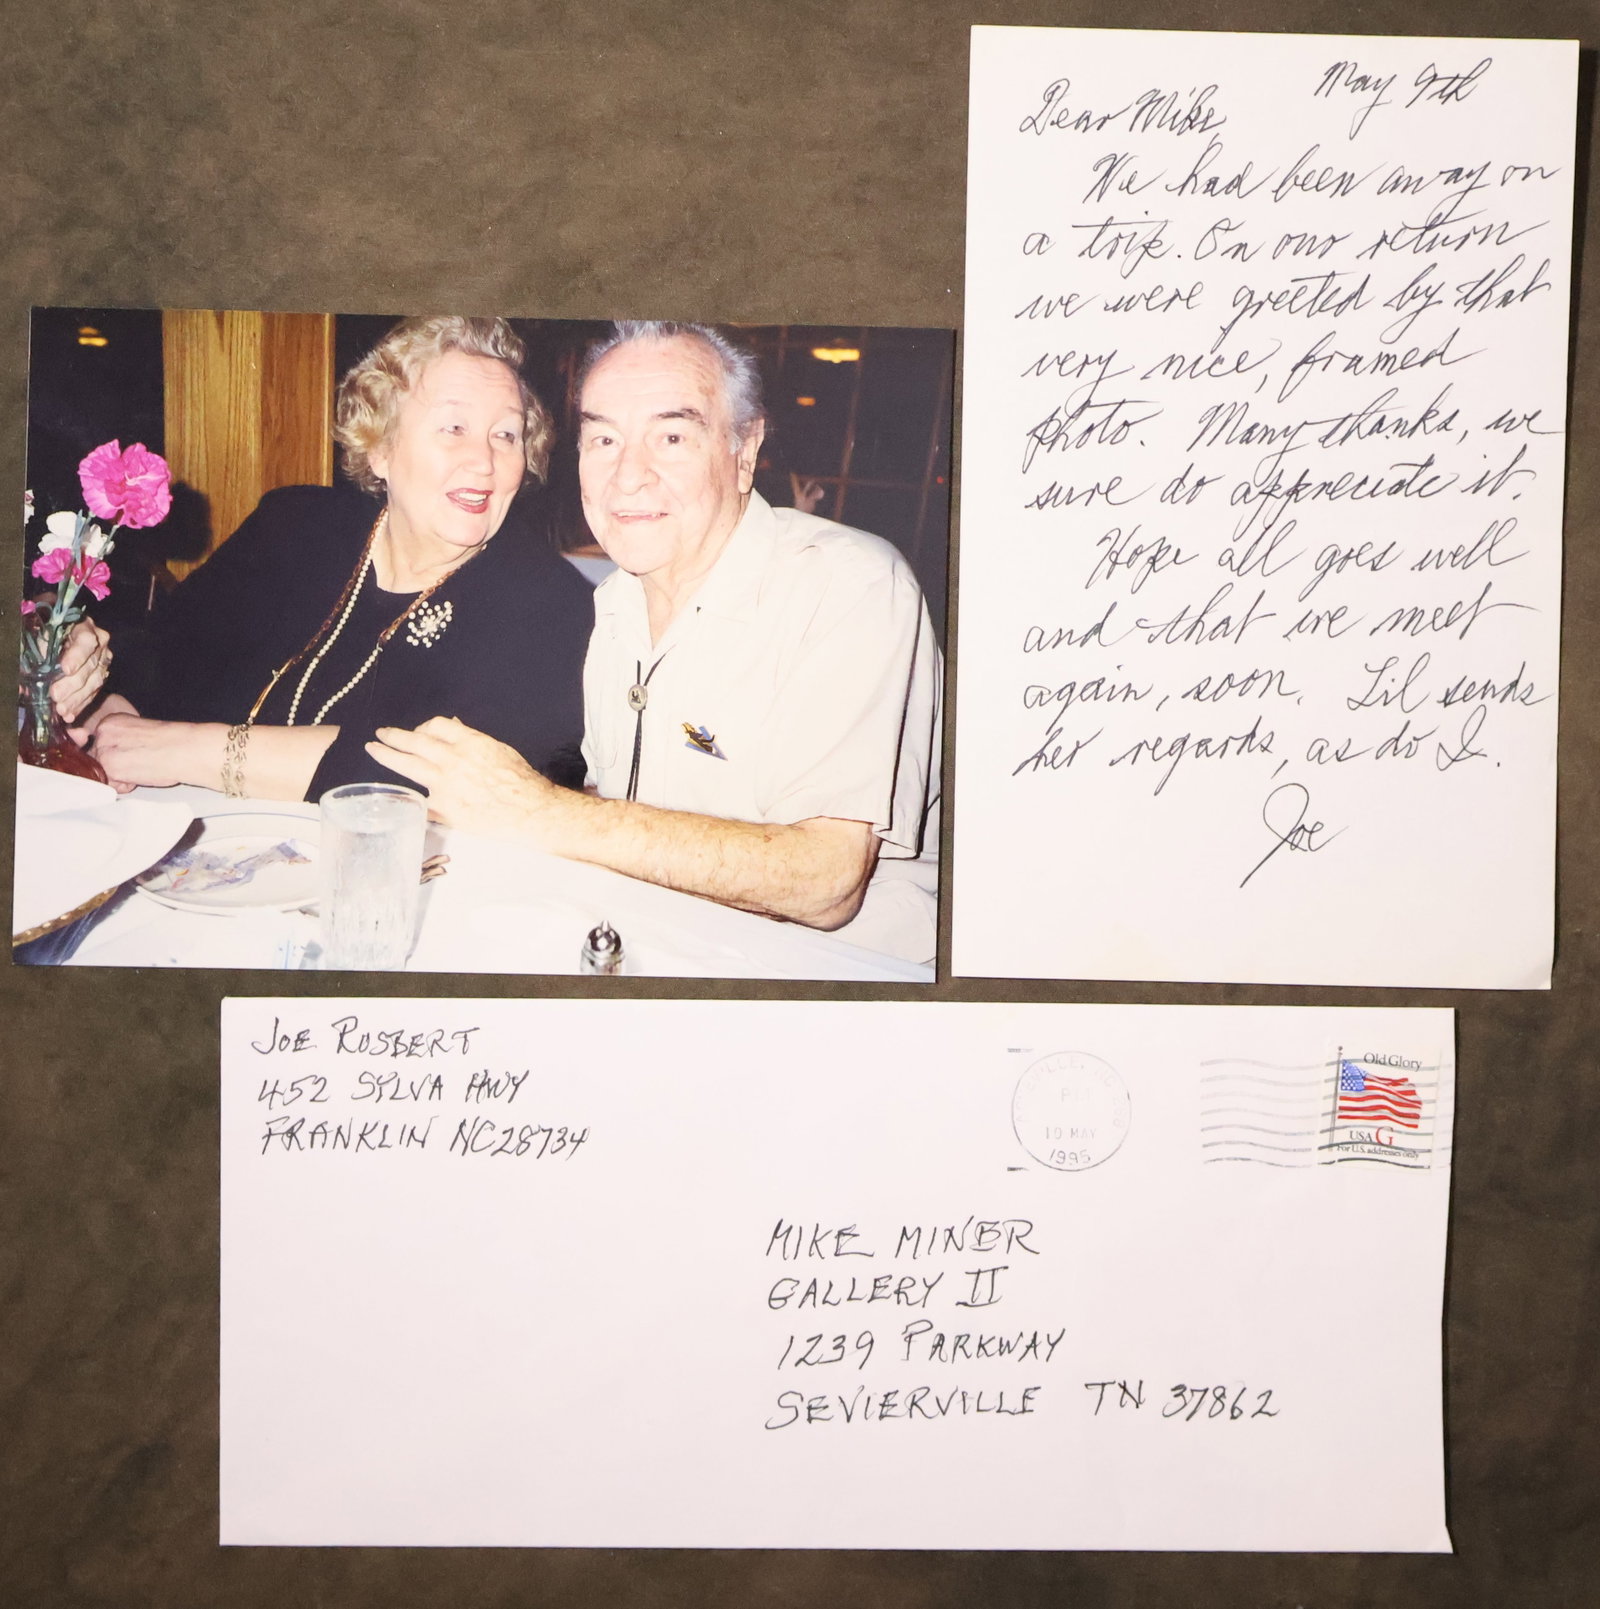 May 9th
Dear Mike,
We had been away on
a trip. On our return
we were greeted by that
very nice, framed
photo. Many thanks, we
sure do appreciate it.
Hope all goes well
and that we meet
again, soon. Lil sends
her regards, as do I.
Joe
JOE ROSBERT
452 SYLVA HWY
FRANKLIN NC 28734
10 MAY
1995
Old Glory
USA G
For U.S. addresses only
MIKE MINER
GALLERY II
1239 PARKWAY
SEVIERVILLE TN 37862